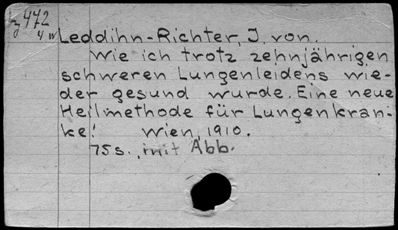 472
4 w
Leddihn-Richter, J. von.
Wie ich trotz zehnjährigen
schweren Lungenleidens wie-
der gesund wurde. Eine neue
Heilmethode für Lungenkran-
ke! Wien, 1910.
75 s., mit Abb.